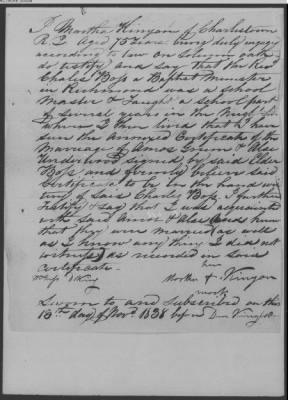 I Martha Kinyon of Charlestown
R.I. Aged 75 years being duly engaged
according to law on Solemn oath
do testify and say that the Rev.
Charles Boss a Baptist Minister
in Richmond was a school
Master & Taught a school part
of several years in the
where I then lived that I have
seen the annexed Certificate of the
Marriage of Amos & Alse
Underwood signed by said Elder
Boss and firmly believe said
Certificate to be in the hand wri
ting of Said Charles Boss. I further
testify & say that I was acquainted
with Said Amos & Alse and knew
that they were married as well
as I know any thing I did not
witness as recorded in said
Certificate
her
Martha + Kinyon
mark
Sworn to and Subscribed on this
13th day of Novr 1838 before